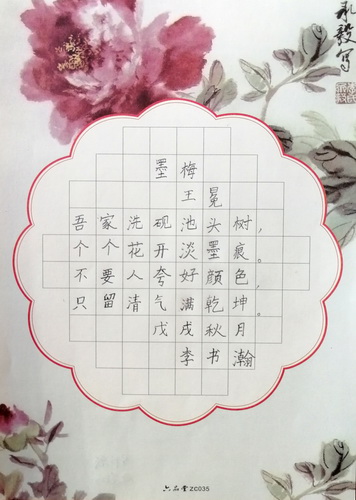 承毅写
墨梅
王冕
吾家洗砚池头树，
个个花开淡墨痕。
不要人夸好颜色，
只留清气满乾坤。
戊戌秋月
李书瀚
六品堂 ZC035